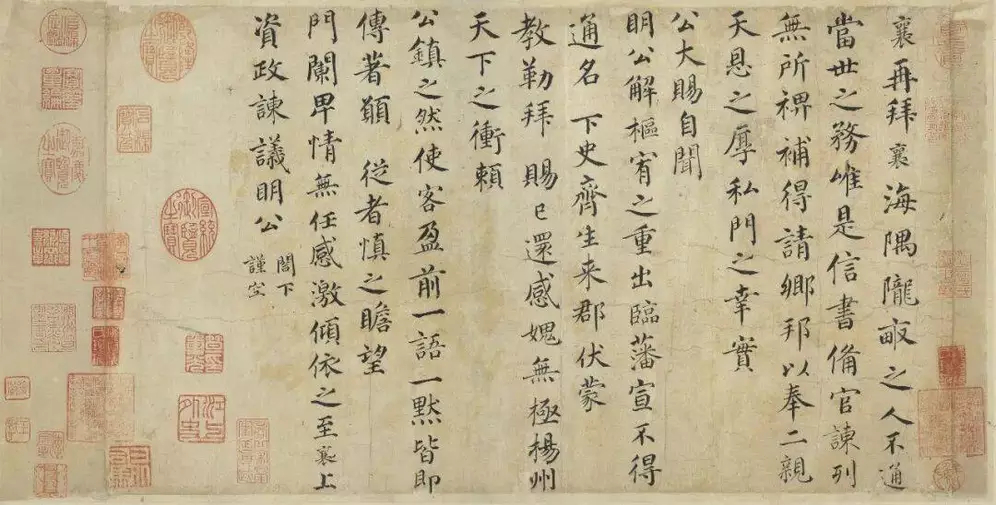 襄再拜襄海隅隴畝之人不通
當世之務唯是信書備官諫列
無所裨補得請鄉邦以奉二親
天恩之厚私門之幸實
公大賜自聞
明公解樞宥之重出臨藩宣不得
通名 下史齊生来郡伏蒙
教勒拜 賜已還感媿無極楊州
天下之衝賴
公鎮之然使客盈前一語一默皆即
傳著願 從者慎之瞻望
門闌卑情無任感激傾依之至襄上
資政諫議明公
閤下
謹空
宣統御覽之寶